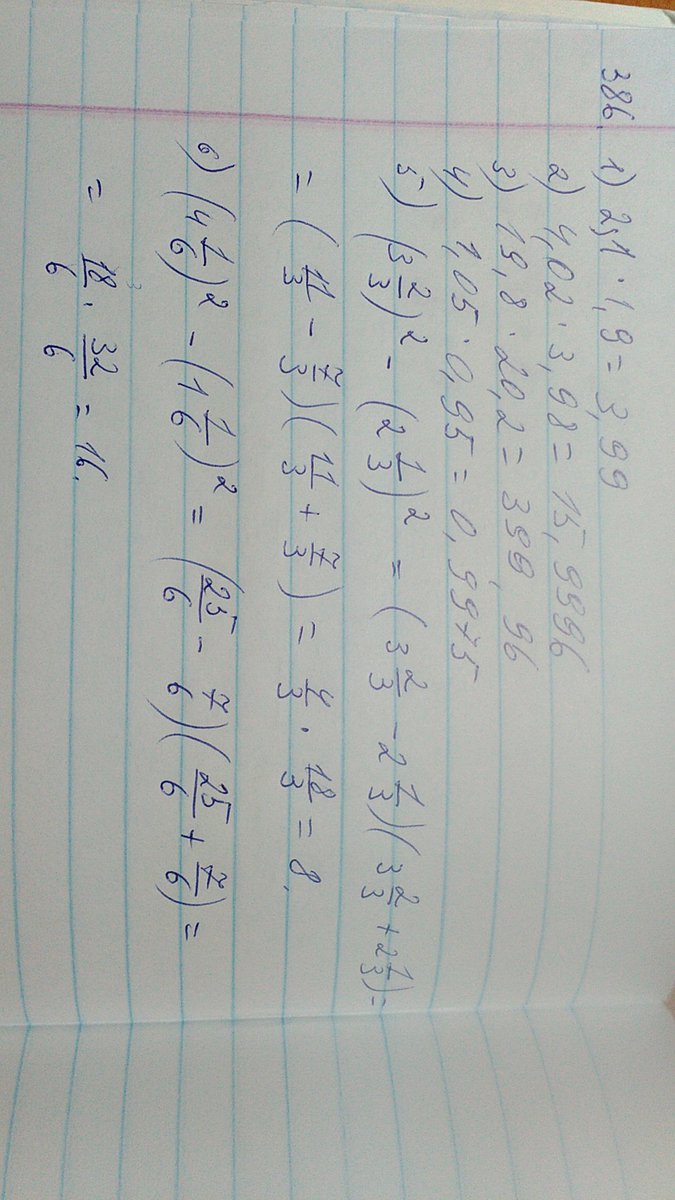 386. 1) 2,1 · 1,9 = 3,99
2) 4,02 · 3,98 = 15,9996
3) 19,8 · 20,2 = 399,96
4) 1,05 · 0,95 = 0,9975
5) (3 2/3)² - (2 1/3)² = (3 2/3 - 2 1/3)(3 2/3 + 2 1/3) =
= (11/3 - 7/3)(11/3 + 7/3) = 4/3 · 18/3 = 8.
6) (4 1/6)² - (1 1/6)² = (25/6 - 7/6)(25/6 + 7/6) =
= 18/6 · 32/6 = 16.